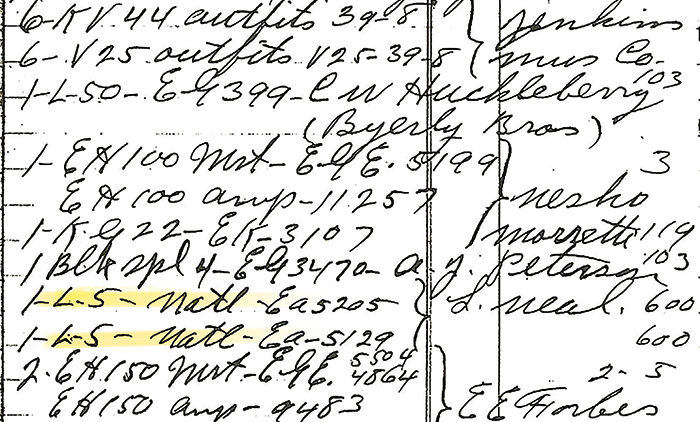 6-KV 44 outfits 39-8 } Jenkins
6-V25 outfits V25-39-8 } Mus Co-
1-L-50-EG4399-CW Huckleberry 103
(Byerly Bros)
1-EH100 Mst-EGE. 5199 3
EH100 amp-11257 Nesho
1-KG22-EK-3107 Morzette 119
1 Blk spl 4-EG3470-A. J. Peterson 103
1-L-5-Natl-Ea5205 L. Neal. 600
1-L-5-Natl-Ea-5129 600
2-EH150 Mst-EGE. 5504 4864 2-5
EH150 amp-9483 EE Forbes